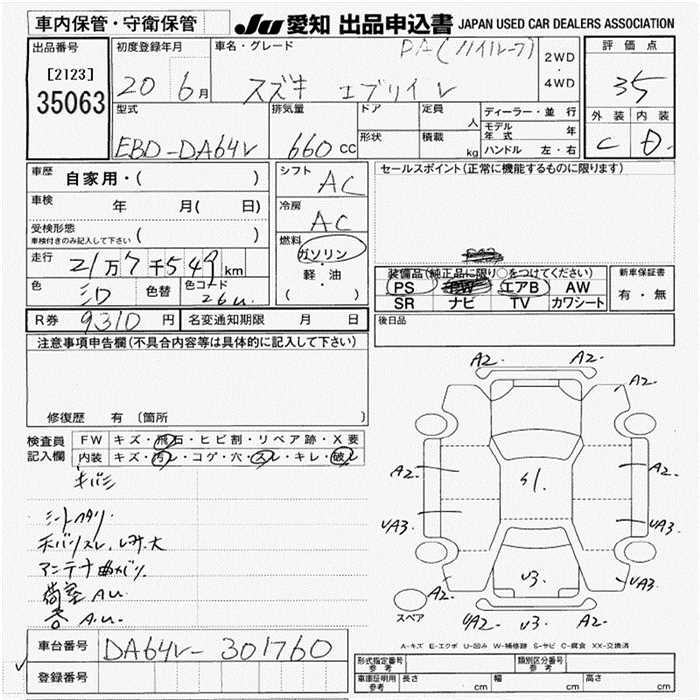 車内保管・守衛保管
JU 愛知 出品申込書 JAPAN USED CAR DEALERS ASSOCIATION
出品番号
[2123]
35063
初度登録年月
20 6月
車名・グレード
PA(ハイルーフ)
スズキ エブリイV
2WD
・
4WD
評価点
35
外装 内装
C D
型式
EBD-DA64V
排気量
660 cc
ドア
定員
人
形状
積載
kg
ディーラー・並行
モデル年式 年
ハンドル 左・右
車歴 自家用・( )
車検 年 月(日)
受検形態
車検付きのみ記入して下さい ( )
走行 21万7千549km
色 シロ 色替 色コード 26U
シフト AC
冷房 AC
燃料
ガソリン
・
軽・油
( )
セールスポイント(正常に機能するものに限ります)
装備品(純正品に限り○をつけてください)
PS PW エアB AW
SR ナビ TV カワシート
新車保証書
有・無
後日品
R券 9310円 名変通知期限 月 日
注意事項申告欄(不具合内容等は具体的に記入して下さい)
修復歴 有 〔箇所 〕
検査員記入欄
FW キズ・飛石・ヒビ割・リペア跡・X要
内装 キズ・汚レ・コゲ・穴・スレ・キレ・破レ
キバミ
シートヘタリ
スレ
アンテナ曲がり
荷室 A.U.
A.U.
A2.
A2.
A2.
A2.
A2.
A2.
S1.
UA3.
UA3.
U3.
A2.
UA3.
UA2.
U3.
A2.
スペア
A-キズ E-エクボ U-凹み W-補修跡 S-サビ C-腐食 XX-交換済
車台番号 DA64V-301760
登録番号
形式指定番号 参考
類別区分番号 参考
車庫証明用 参考 長さ cm 幅 cm 高さ cm